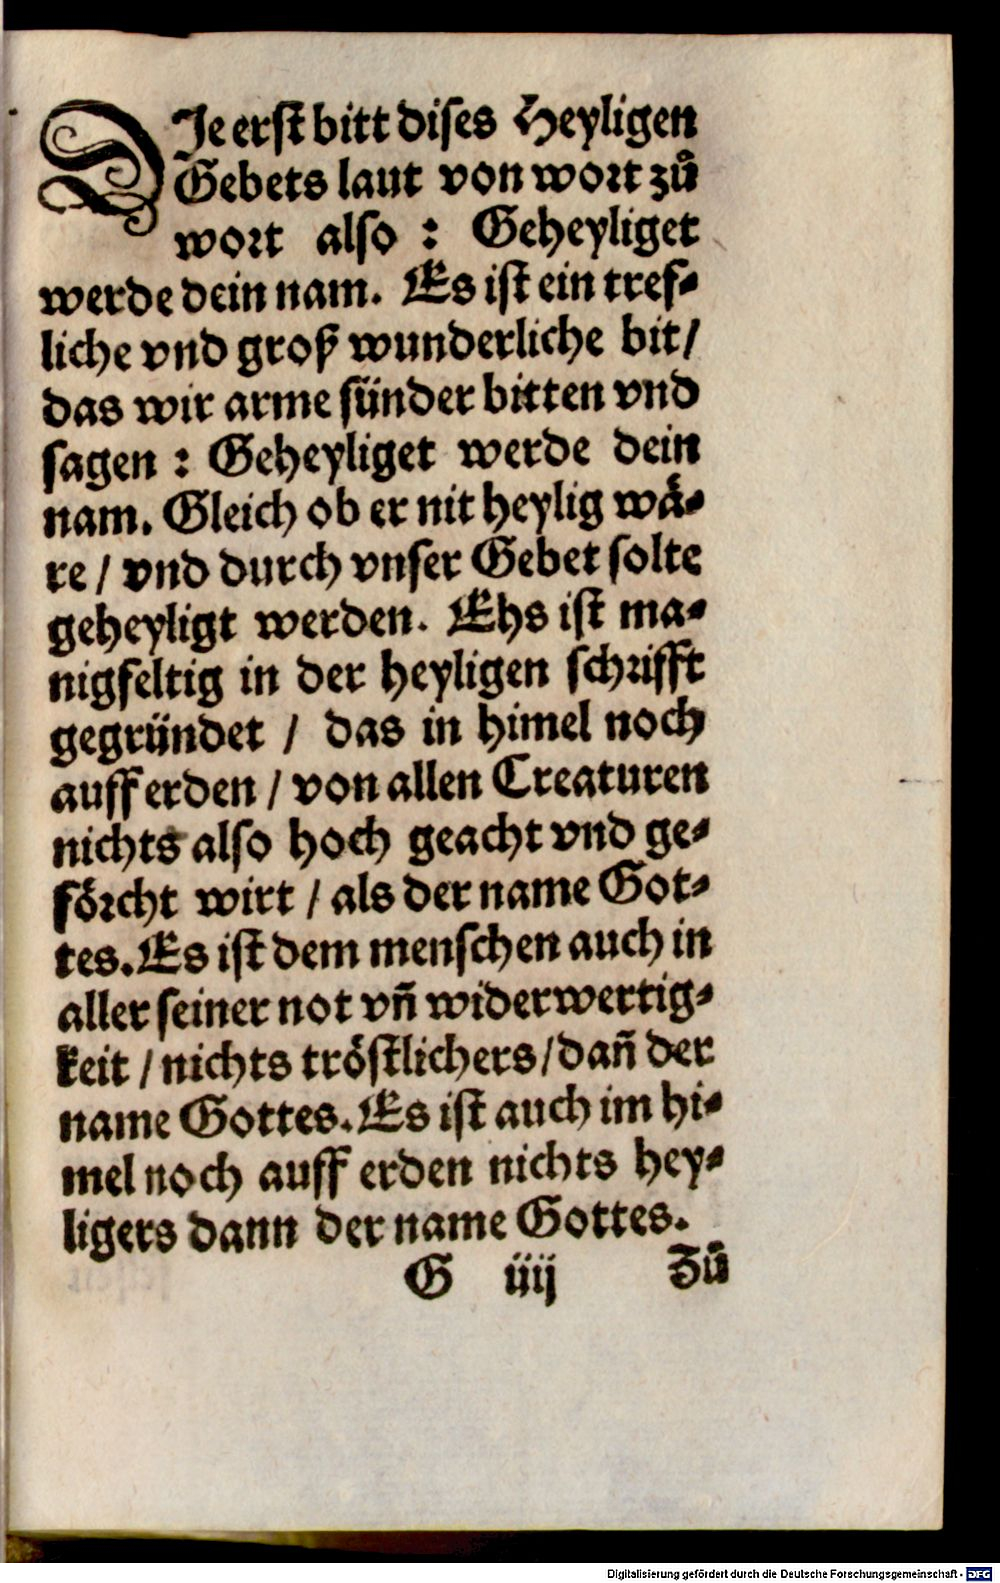 DIe erst bitt dises Heyligen
Gebets laut von wort zů
wort also : Geheyliget
werde dein nam. Es ist ein tref⸗
liche vnd groß wunderliche bit/
das wir arme sünder bitten vnd
sagen : Geheyliget werde dein
nam. Gleich ob er nit heylig wå⸗
re / vnd durch vnser Gebet solte
geheyligt werden. Ehs ist ma⸗
nigfeltig in der heyligen schrifft
gegründet / das in himel noch
auff erden / von allen Creaturen
nichts also hoch geacht vnd ge⸗
förcht wirt / als der name Got⸗
tes. Es ist dem menschen auch in
aller seiner not vñ widerwertig⸗
keit / nichts tröstlichers/dañ der
name Gottes. Es ist auch im hi⸗
mel noch auff erden nichts hey⸗
ligers dann der name Gottes.
G iiij Zů
Digitalisierung gefördert durch die Deutsche Forschungsgemeinschaft - DFG